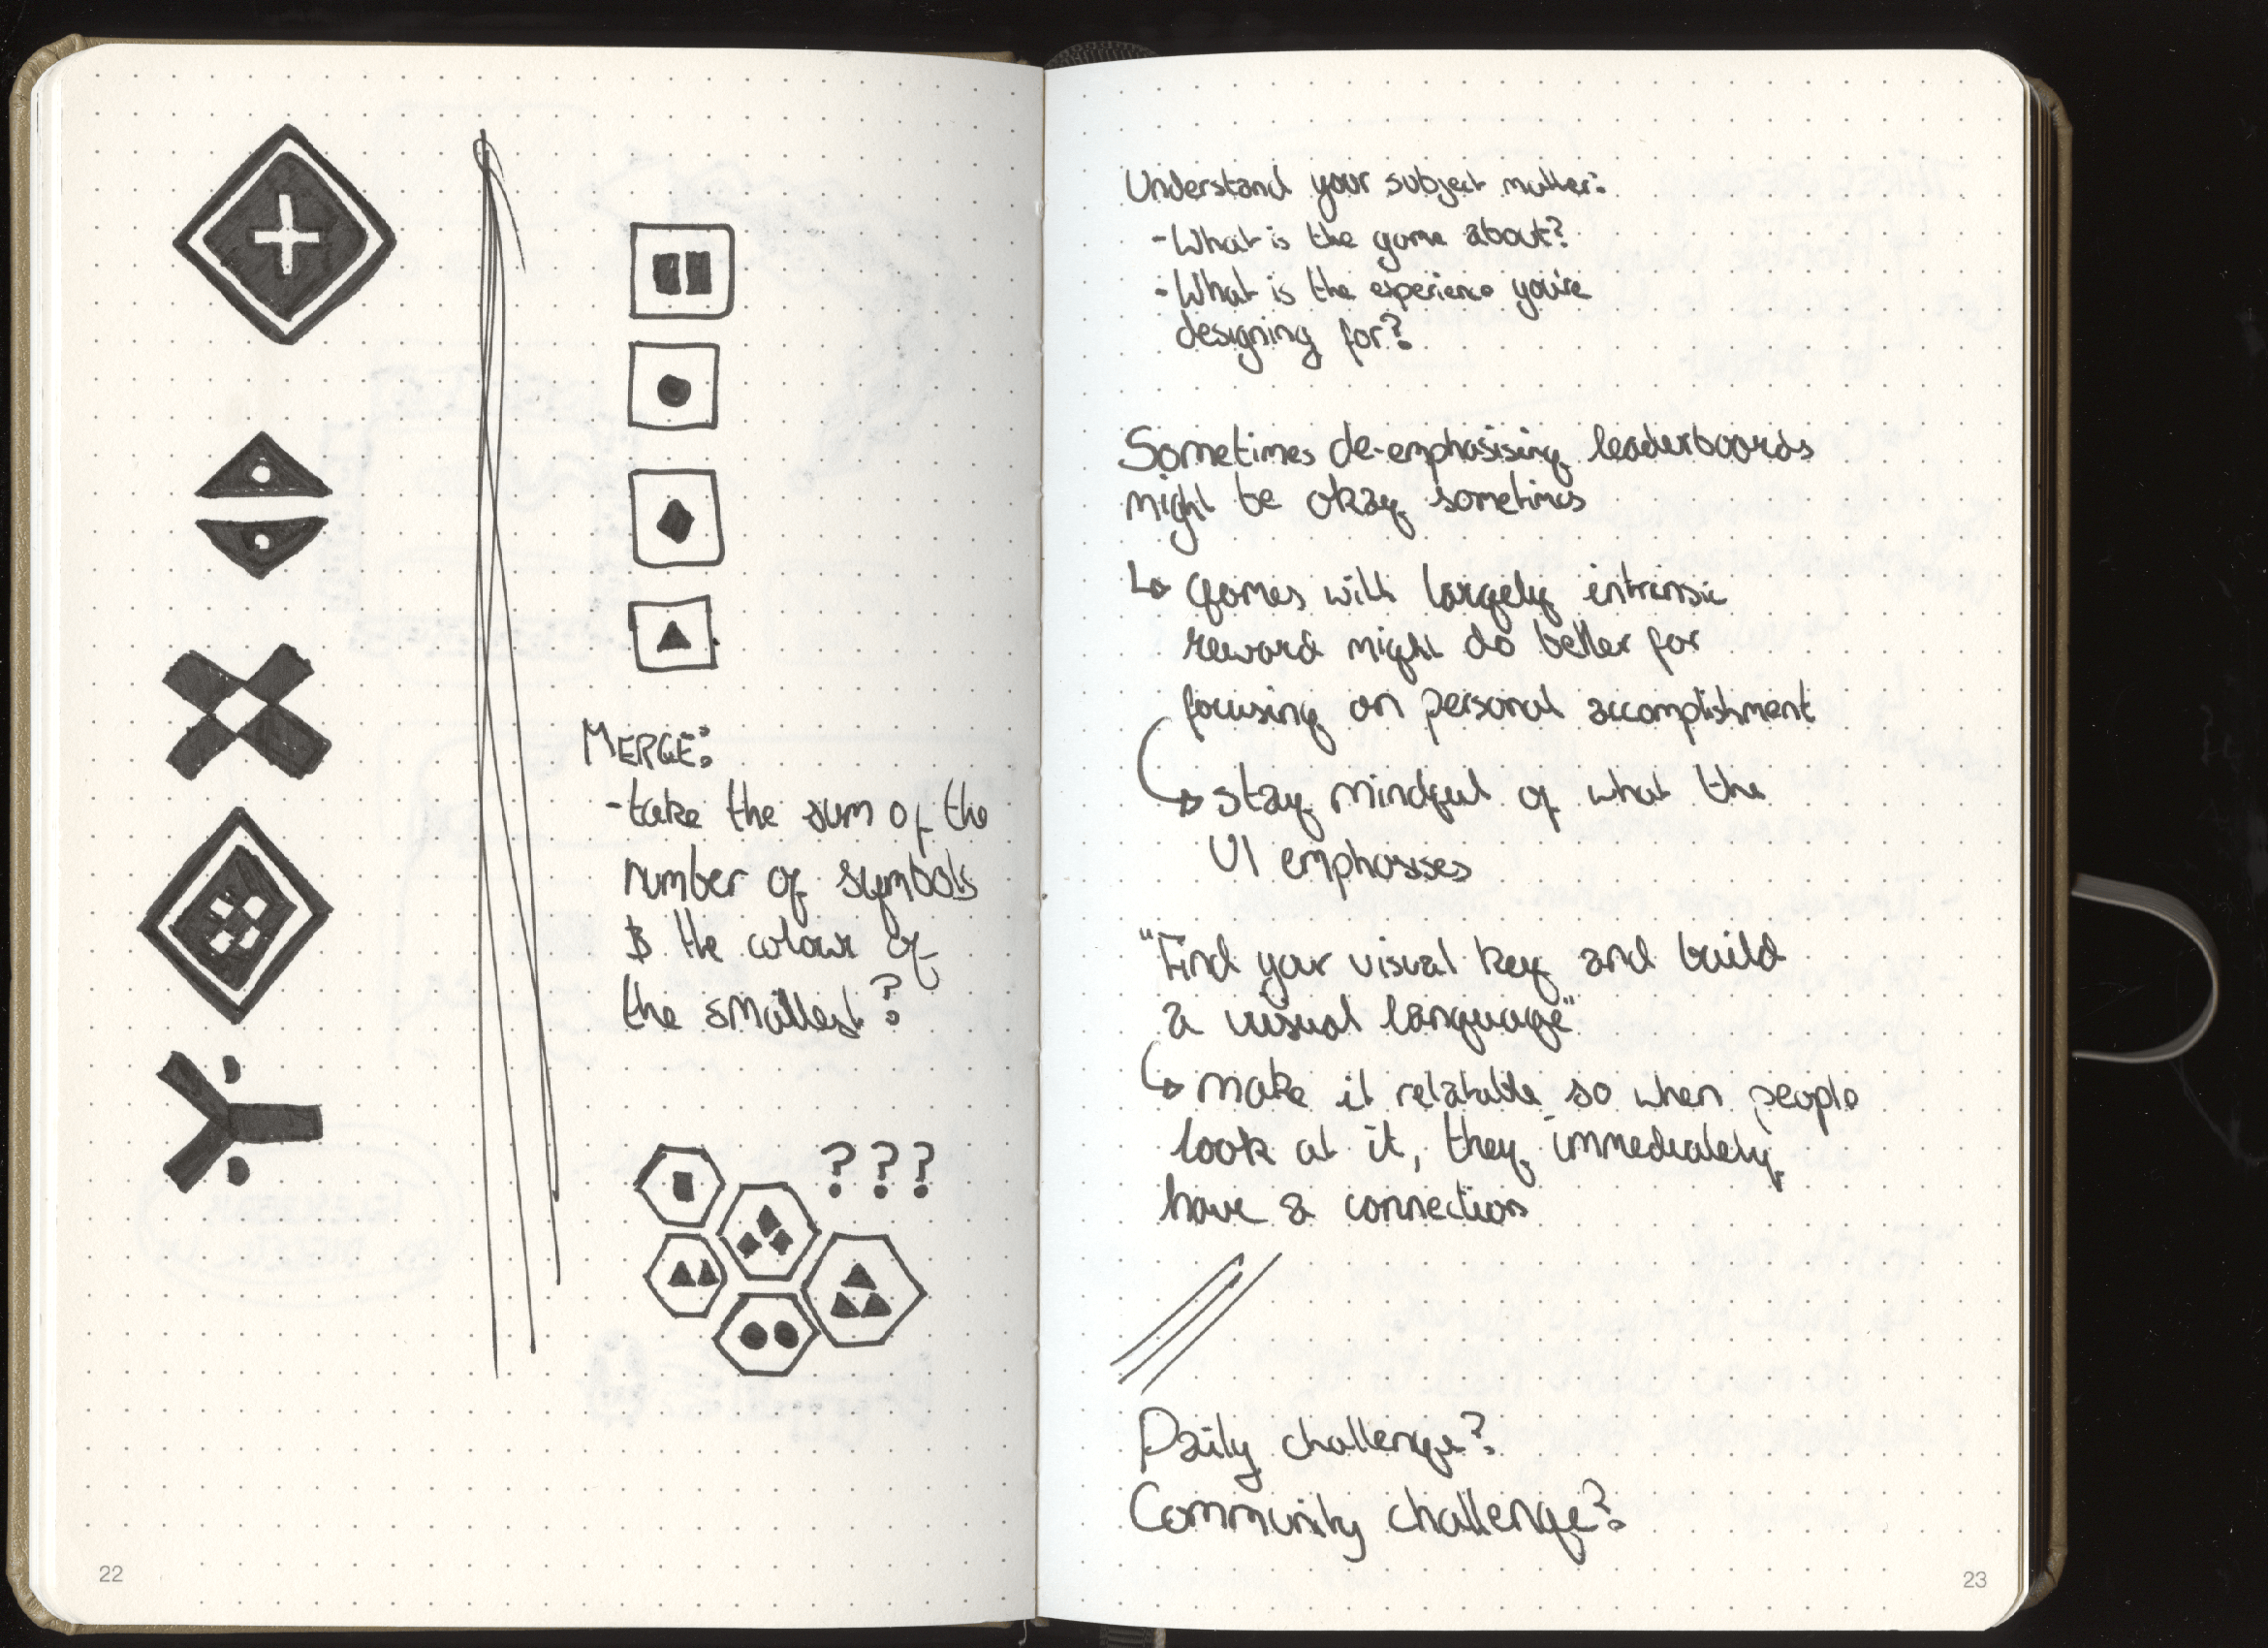 MERGE:
-take the sum of the
number of symbols
& the colour of
the smallest?
???
22
Understand your subject matter:
-What is the game about?
-What is the experience you're
designing for?
Sometimes de-emphasising leaderboards
might be okay sometimes
↳ Games with largely intrinsic
reward might do better for
focusing on personal accomplishment
↳ stay mindful of what the
UI emphasises
"Find your visual key and build
a visual language"
↳ make it relatable so when people
look at it, they immediately
have a connection
Daily challenge?
Community challenge?
23